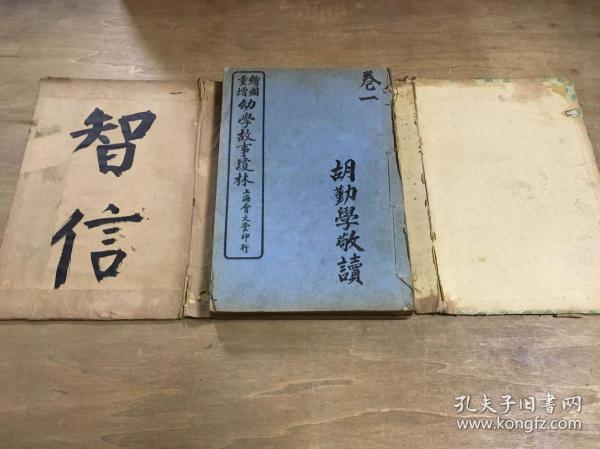 智
信
繪圖
重增
幼學故事瓊林
上海會文堂印行
卷一
胡勤學敬讀
孔夫子旧书网
www.kongfz.com